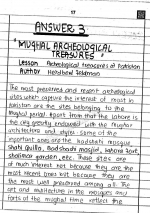 17
ANSWER 3
"MUGHAL ARCHEOLOGICAL
TREASURES"
Lesson Archeological treasures of Pakistan
Author Herzbad Feldman
The most preserved and recent archeological
sites which capture the interest of most in
Pakistan are the sites belonging to the
Mughal period. Apart from that the Lahore is
the city greatly endowed with the mughal
architecture and styles. Some of the
important ones are the badshahi mosque,
Shahi Quilla, Badshahi masjid, Lahore fort,
Shalimar garden, etc. These sites are
of much interest not because they are the
most recent ones but because they are
the most well preserved among all. The
art and architecture in the mosques and
forts of the mughal time reflect the